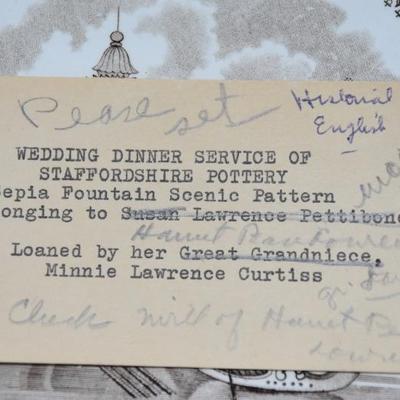 Pease set
Historical
English
WEDDING DINNER SERVICE OF
STAFFORDSHIRE POTTERY
Sepia Fountain Scenic Pattern
onging to Susan Lawrence Pettibone
Harriet
Loaned by her Great Grandniece,
Minnie Lawrence Curtiss
Check will of Harriet